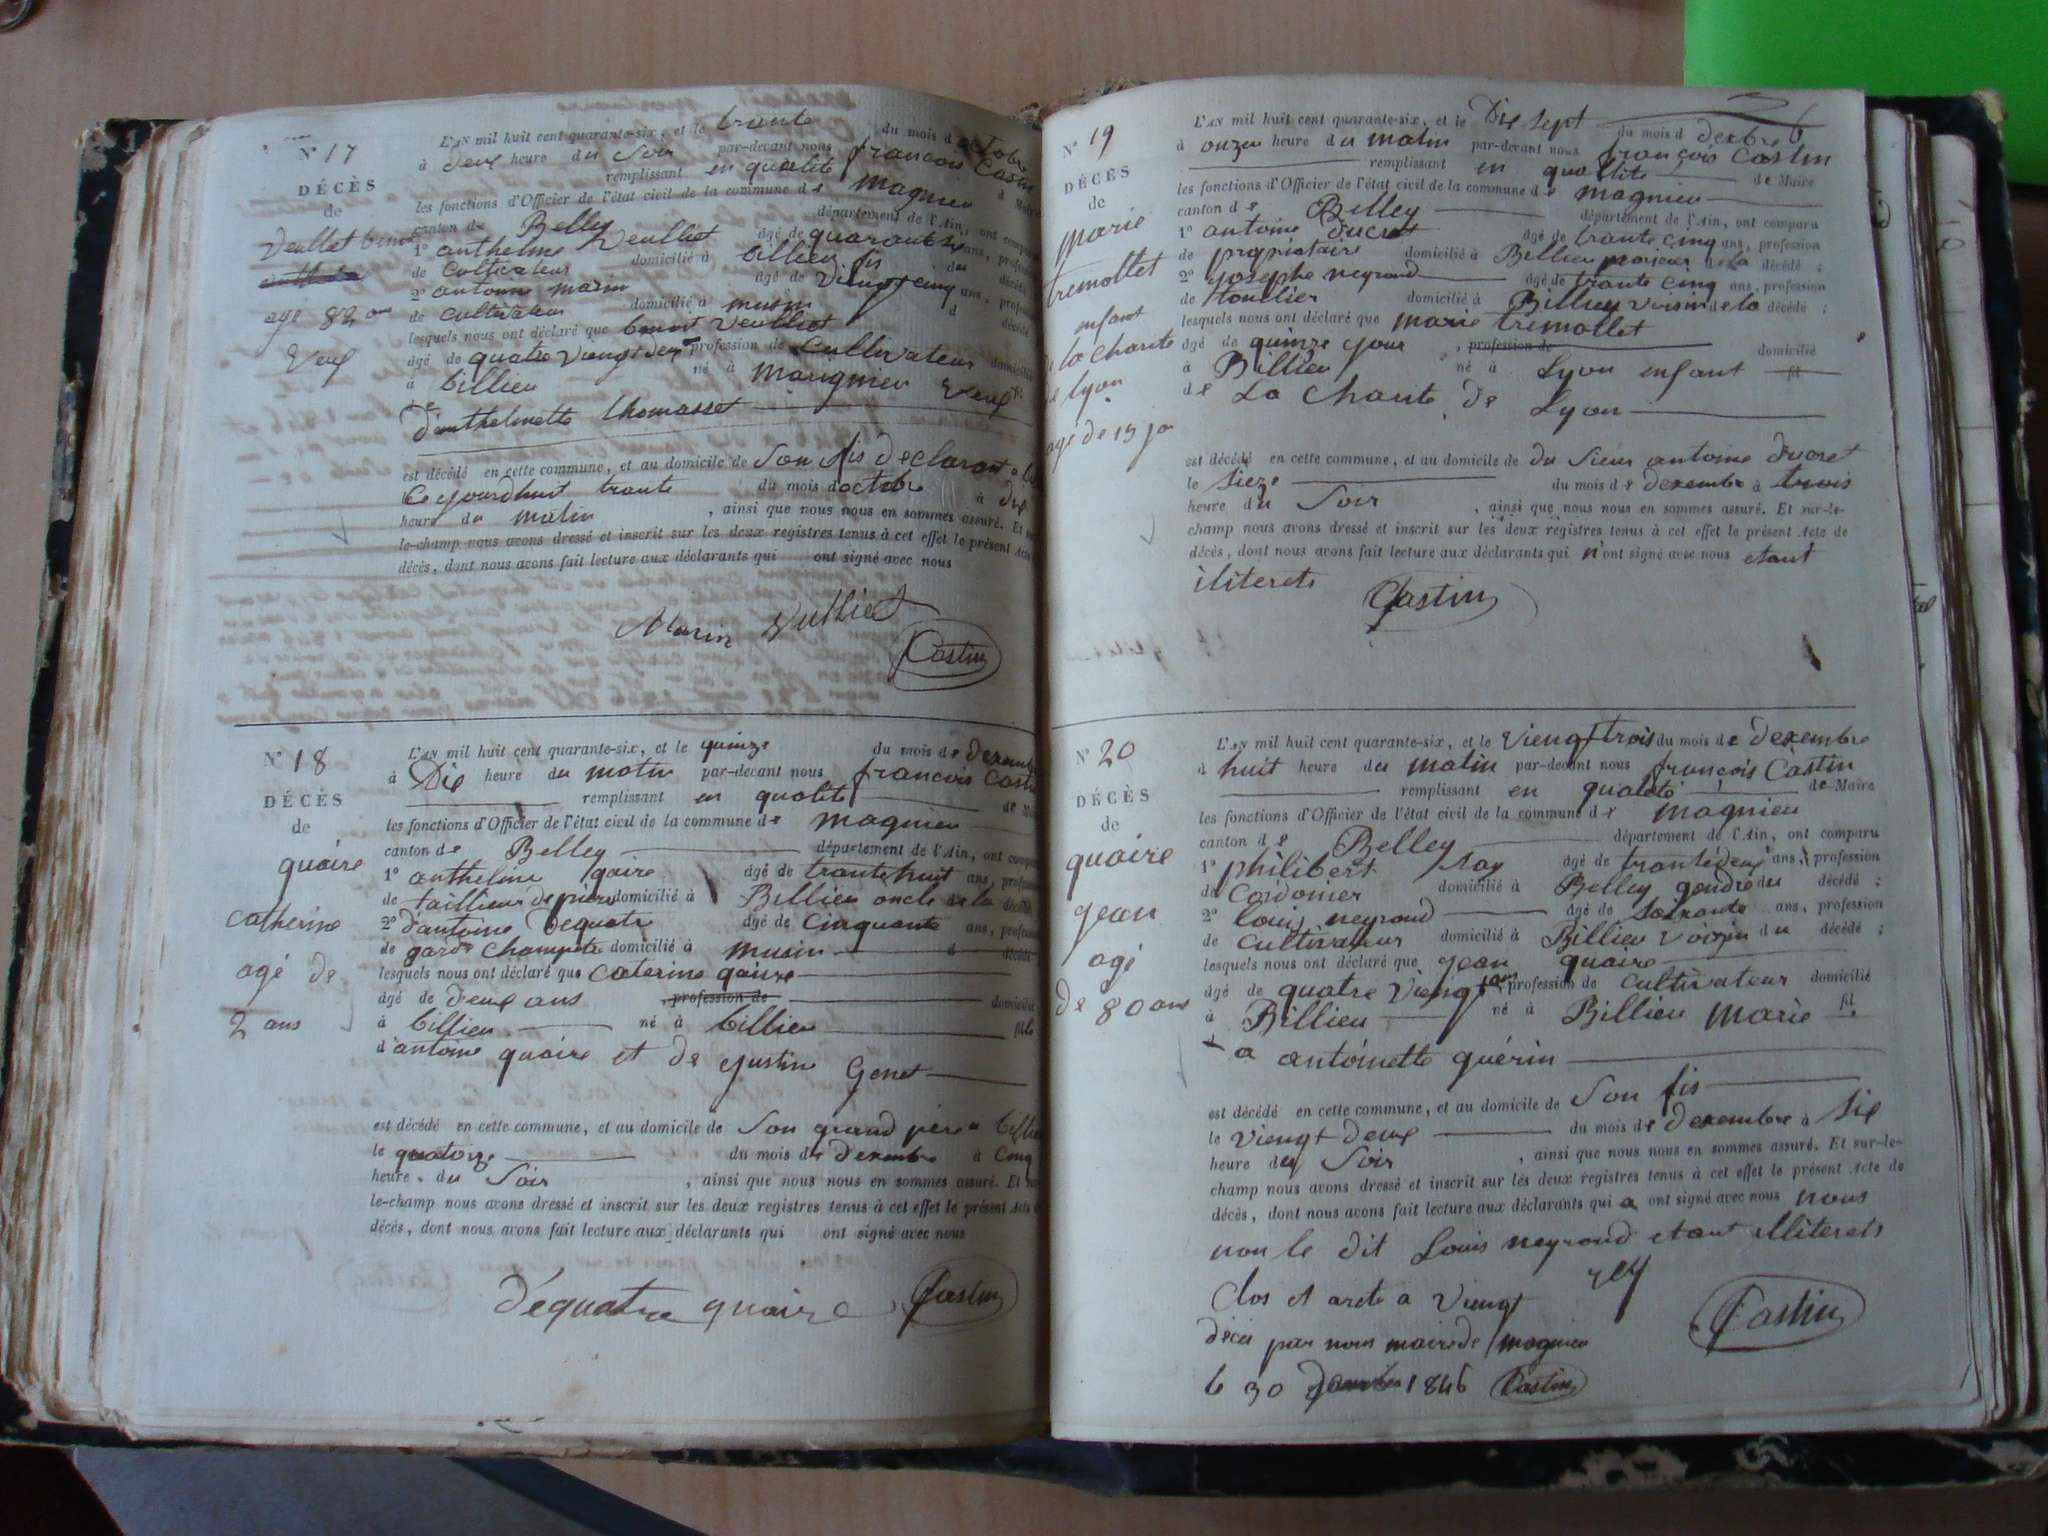 N° 17
DÉCÈS
de
Veullet benoit
agé 82 ans
Veuf
L'AN mil huit cent quarante-six, et le trante du mois d'octobre
à deux heure du Soir par-devant nous françois Castin
remplissant en qualité d Maire
les fonctions d'Officier de l'état civil de la commune de magnieu
canton de Belley département de l'Ain, ont comparu
1° anthelme Veulliet âgé de quarante six ans, profession
de Cultivateur domicilié à billieu fis du décédé
2° antoine marin âgé de Viengt cinq ans, profession
de cultivateur domicilié à musin d décédé
lesquels nous ont déclaré que benoit Veulliet
âgé de quatre Viengt deux profession de Cultivateur domicilié
à billieu né à maignieu Veuf fil
d'anthelmette thomasset
est décédé en cette commune, et au domicile de Son fis declarant a
le Cejourdhuit trante du mois d octobre à dix
heure du matin , ainsi que nous nous en sommes assuré. Et sur-
le-champ nous avons dressé et inscrit sur les deux registres tenus à cet effet le présent Acte
décès, dont nous avons fait lecture aux déclarants qui ont signé avec nous
Marin Vulliet
Castin
N° 18
DÉCÈS
de
quaire
catherine
agé de
2 ans
L'AN mil huit cent quarante-six, et le quinze du mois de dexembre
à Dix heure du matin par-devant nous françois Castin
remplissant en qualité de Maire
les fonctions d'Officier de l'état civil de la commune de magnieu
canton de Belley département de l'Ain, ont comparu
1° anthelme qaire âgé de trante huit ans, profession
de taillieur de pière domicilié à Billieu oncle de la décédé
2° d'antoine Dequatre âgé de Cinquante ans, profession
de garde champetre domicilié à musin d décédé
lesquels nous ont déclaré que Caterine qaire
âgé de deux ans profession de domicilié
à billieu né à billieu fille
d'antoine quaire et de Justine Genet
est décédé en cette commune, et au domicile de Son grand père a billieu
le quatorze du mois de dexembre à Cinq
heure du Soir , ainsi que nous nous en sommes assuré. Et sur-
le-champ nous avons dressé et inscrit sur les deux registres tenus à cet effet le présent Acte d
décès, dont nous avons fait lecture aux déclarants qui ont signé avec nous
déquatre quaire Castin
N° 19
DÉCÈS
de
Marie
tremollet
enfant
de la charite
de lyon
agé de 15 jo
L'AN mil huit cent quarante-six, et le Dix sept du mois d dexbre
à onze heure du matin par-devant nous françois Castin
remplissant en qualité de Maire
les fonctions d'Officier de l'état civil de la commune de magnieu
canton de Belley département de l'Ain, ont comparu
1° antoine ducret âgé de trante cinq ans, profession
de propriataire domicilié à Billieu de la décédé ;
2° Josephe neyroud âgé de trante cinq ans, profession
de domicilié à Billieu Voisin de la décédé ;
lesquels nous ont déclaré que marie tremollet
âgé de quinze jour , profession de domicilié
à Billieu né à Lyon enfant fil
de La Charité de Lyon
est décédé en cette commune, et au domicile de du Sieur antoine ducret
le Sieze du mois de dexembre à trois
heure du Soir , ainsi que nous nous en sommes assuré. Et sur-le-
champ nous avons dressé et inscrit sur les deux registres tenus à cet effet le présent Acte de
décès, dont nous avons fait lecture aux déclarants qui n'ont signé avec nous etant
iliterets Castin
N° 20
DÉCÈS
de
quaire
Jean
agé
de 80 ans
L'AN mil huit cent quarante-six, et le Viengt trois du mois de dexembre
à huit heure du matin par-devant nous françois Castin
remplissant en qualité de Maire
les fonctions d'Officier de l'état civil de la commune de magnieu
canton de Belley département de l'Ain, ont comparu
1° philibert Ray âgé de trante deux ans, profession
de Cordonier domicilié à Belley gendre du décédé ;
2° louis neyroud âgé de Soixante ans, profession
de Cultivateur domicilié à Billieu Voizin du décédé ;
lesquels nous ont déclaré que Jean quaire
âgé de quatre Viengt ans profession de Cultivateur domicilié
à Billieu né à Billieu Marié fil
a antoinette guérin
est décédé en cette commune, et au domicile de Son fis
le Viengt deux du mois de dexembre à Six
heure du Soir , ainsi que nous nous en sommes assuré. Et sur-le-
champ nous avons dressé et inscrit sur les deux registres tenus à cet effet le présent Acte de
décès, dont nous avons fait lecture aux déclarants qui a ont signé avec nous nous
non le dit Louis neyroud etant illiterets
rey
Castin
Clos et areté a Viengt
décès par nous maire de magnieu
le 30 1846 Castin